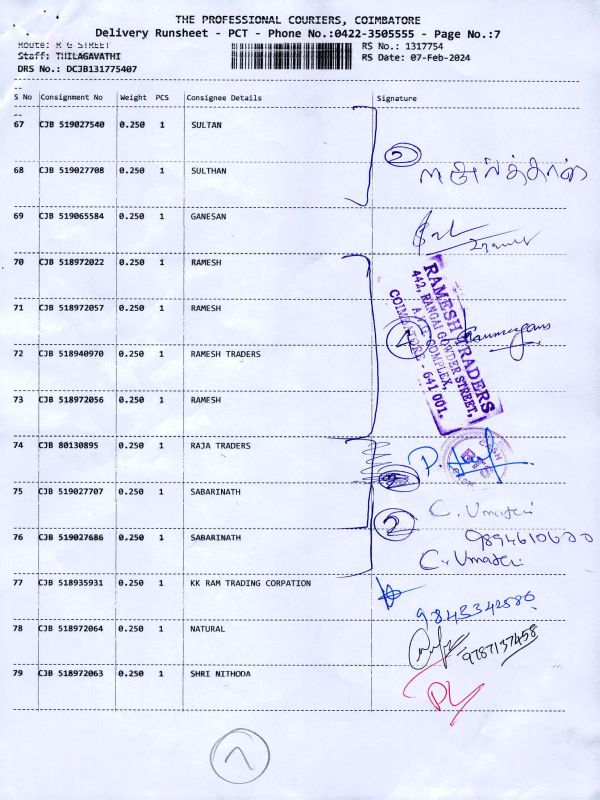 THE PROFESSIONAL COURIERS, COIMBATORE
Delivery Runsheet - PCT - Phone No.:0422-3505555 - Page No.:7
Route: R G STREET
RS No.: 1317754
Staff: THILAGAVATHI
RS Date: 07-Feb-2024
DRS No.: DCJB131775407
S No Consignment No Weight PCS Consignee Details Signature
67 CJB 519027540 0.250 1 SULTAN
2
68 CJB 519027708 0.250 1 SULTHAN
69 CJB 519065584 0.250 1 GANESAN
70 CJB 518972022 0.250 1 RAMESH
71 CJB 518972057 0.250 1 RAMESH
RAMESH TRADERS
442, RANGAI GOWDER STREET,
COMPLEX,
COIMBATORE - 641 001.
4
72 CJB 518940970 0.250 1 RAMESH TRADERS
73 CJB 518972056 0.250 1 RAMESH
74 CJB 80130895 0.250 1 RAJA TRADERS
75 CJB 519027707 0.250 1 SABARINATH
2
C. Umadevi
76 CJB 519027686 0.250 1 SABARINATH
C. Umadevi
77 CJB 518935931 0.250 1 KK RAM TRADING CORPATION
9843342580
78 CJB 518972064 0.250 1 NATURAL
9787137458
79 CJB 518972063 0.250 1 SHRI NITHODA